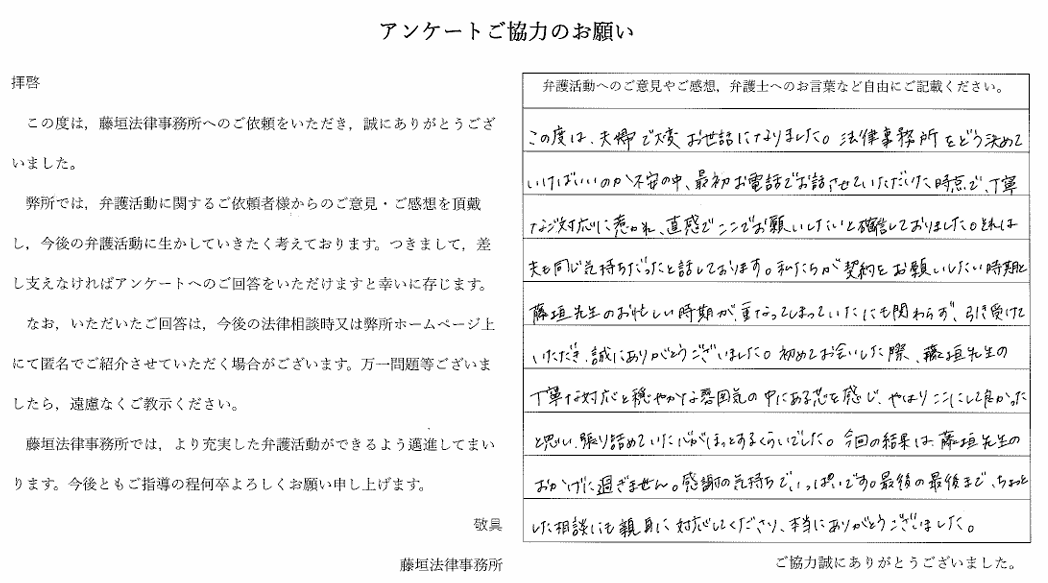 アンケートご協力のお願い
拝啓
この度は，藤垣法律事務所へのご依頼をいただき，誠にありがとうござ
いました。
弊所では，弁護活動に関するご依頼者様からのご意見・ご感想を頂戴
し，今後の弁護活動に生かしていきたく考えております。つきまして，差
し支えなければアンケートへのご回答をいただけますと幸いに存じます。
なお，いただいたご回答は，今後の法律相談時又は弊所ホームページ上
にて匿名でご紹介させていただく場合がございます。万一問題等ございま
したら，遠慮なくご教示ください。
藤垣法律事務所では，より充実した弁護活動ができるよう邁進してまい
ります。今後ともご指導の程何卒よろしくお願い申し上げます。
敬具
藤垣法律事務所
弁護活動へのご意見やご感想，弁護士へのお言葉など自由にご記載ください。
この度は、夫婦で大変お世話になりました。法律事務所をどう決めて
いけばいいのか不安の中、最初お電話でお話させていただいた時点で、丁寧
なご対応に惹かれ、直感でここでお願いしたいと確信しておりました。それは
夫も同じ気持ちだったと話しております。私たちが契約をお願いしたい時期と
藤垣先生のお忙しい時期が、重なってしまっていたにも関わらず、引き受けて
いただき、誠にありがとうございました。初めてお会いした際、藤垣先生の
丁寧な対応と穏やかな雰囲気の中にある芯を感じ、やはりここにして良かった
と思い、張り詰めていた心がほっとするくらいでした。今回の結果は、藤垣先生の
おかげに過ぎません。感謝の気持ちでいっぱいです。最後の最後まで、ちょっと
した相談にも親身に対応してくださり、本当にありがとうございました。
ご協力誠にありがとうございました。